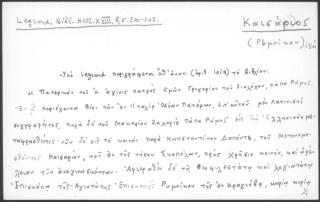 Legrand, Bibl. Hell. XVIII, 2, σ. 240-242.
Καισάριος
(Ρύμνικου)
Ὑπὸ Legrand περιγράφεται (ἀρ. 1019) τὸ βιβλίον:
« Πατερικὸν τοῦ ἐν ἁγίοις πατρὸς ἡμῶν Γρηγορίου τοῦ Διαλόγου, πάπα Ρώμης,
Ἐν ᾧ περιέχονται Βίοι τῶν ἐν Ἰταλίᾳ Ὁσίων Πατέρων, ὑπ' αὐτοῦ μὲν Λατινιστὶ
συγγραφέντες, παρὰ δὲ τοῦ Μακαρίου Ζαχαρία πάπα Ρώμης εἰς Ἑλληνικὸν με-
ταφρασθέντες νῦν δὲ εἰς τὸ κοινὸν παρὰ Κωνσταντίνου Δαπόντε, τοῦ Μετονομα-
σθέντος Καισαρίου, τοῦ ἐκ τῆς νήσου Σκοπέλων, πρὸς χρῆσιν κοινὴν, καὶ ὠφέ-
λειαν τῶν ἀναγινωσκόντων. Ἀφιερωθὲν δὲ τῷ Θεοφιλεστάτῳ καὶ λογιωτάτῳ
Ἐπισκόπῳ τῆς Ἁγιωτάτης Ἐπισκοπῆς Ρυμνίκου τῆς ἐν Κραγιόβᾳ, κυρίῳ κυρίῳ
%